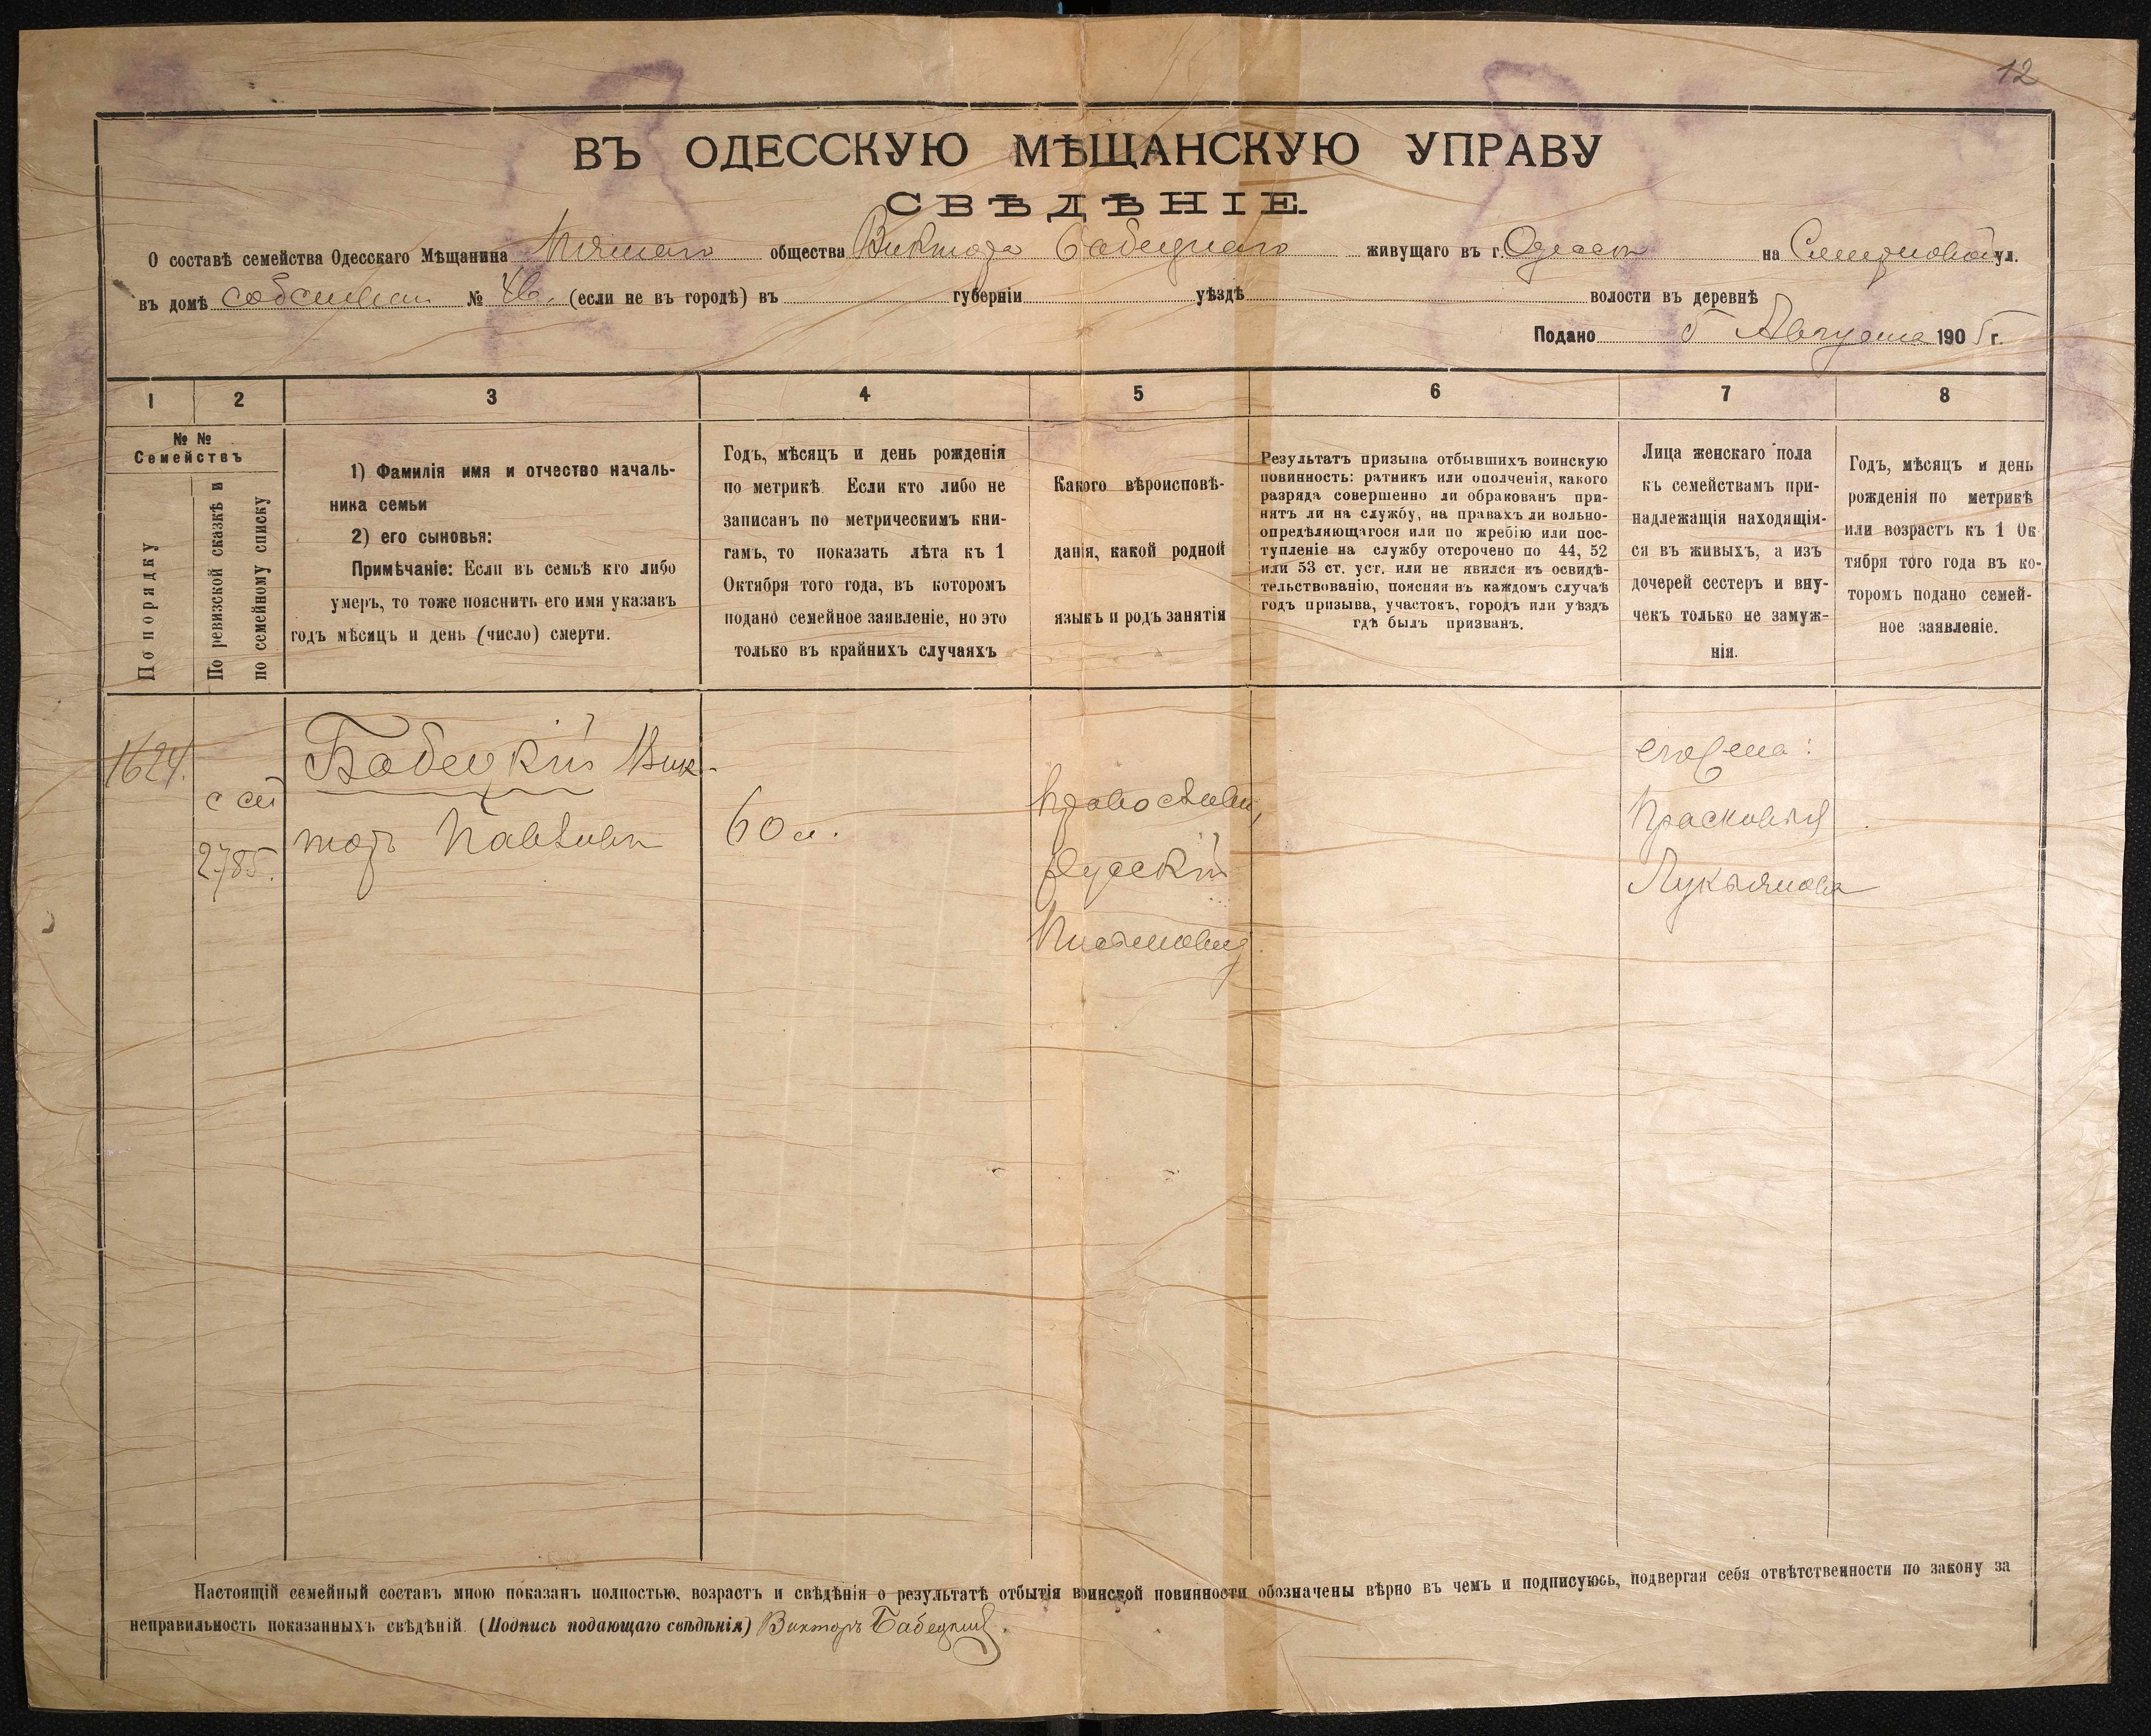 12
ВЪ ОДЕССКУЮ МѢЩАНСКУЮ УПРАВУ
СВѢДѢНІЕ.
О составѣ семейства Одесскаго Мѣщанина общества Виктора Бабецкаго живущаго въ г. Одессѣ на ул.
въ домѣ собствен № (если не въ городѣ) въ губерніи уѣздѣ волости въ деревнѣ
Подано 5 Августа 1905 г.
1 2 3 4 5 6 7 8
№ №
Семействъ
По порядку
По ревизской сказкѣ и
по семейному списку
1) Фамилія имя и отчество началь-
ника семьи
2) его сыновья:
Примѣчаніе: Если въ семьѣ кто либо
умеръ, то тоже пояснить его имя указавъ
годъ мѣсяцъ и день (число) смерти.
Годъ, мѣсяцъ и день рожденія
по метрикѣ. Если кто либо не
записанъ по метрическимъ кни-
гамъ, то показать лѣта къ 1
Октября того года, въ которомъ
подано семейное заявленіе, но это
только въ крайнихъ случаяхъ
Какого вѣроисповѣ-
данія, какой родной
языкъ и родъ занятія
Результатъ призыва отбывшихъ воинскую
повинность: ратникъ или ополченія, какого
разряда совершенно ли обракованъ при-
нятъ ли на службу, на правахъ ли вольно-
опредѣляющагося или по жребію или пос-
тупленіе на службу отсрочено по 44, 52
или 53 ст. уст. или не явился къ освидѣ-
тельствованію, поясняя въ каждомъ случаѣ
годъ призыва, участокъ, городъ или уѣздъ
гдѣ былъ призванъ.
Лица женскаго пола
къ семействамъ при-
надлежащія находящія-
ся въ живыхъ, а изъ
дочерей сестеръ и вну-
чекъ только не замуж-
нія.
Годъ, мѣсяцъ и день
рожденія по метрикѣ
или возрастъ къ 1 Ок-
тября того года въ ко-
торомъ подано семей-
ное заявленіе.
1624.
2785.
Бабецкій Вик-
торъ Павловъ
60 л.
Православн,
Русскій
его жена:
Прасковья
Лукьянова
Настоящій семейный составъ мною показанъ полностью, возрастъ и свѣдѣнія о результатѣ отбытія воинской повинности обозначены вѣрно въ чемъ и подписуюсь, подвергая себя отвѣтственности по закону за
неправильность показанныхъ свѣдѣній. (Подпись подающаго свѣдѣнія) Викторъ Бабецкій.